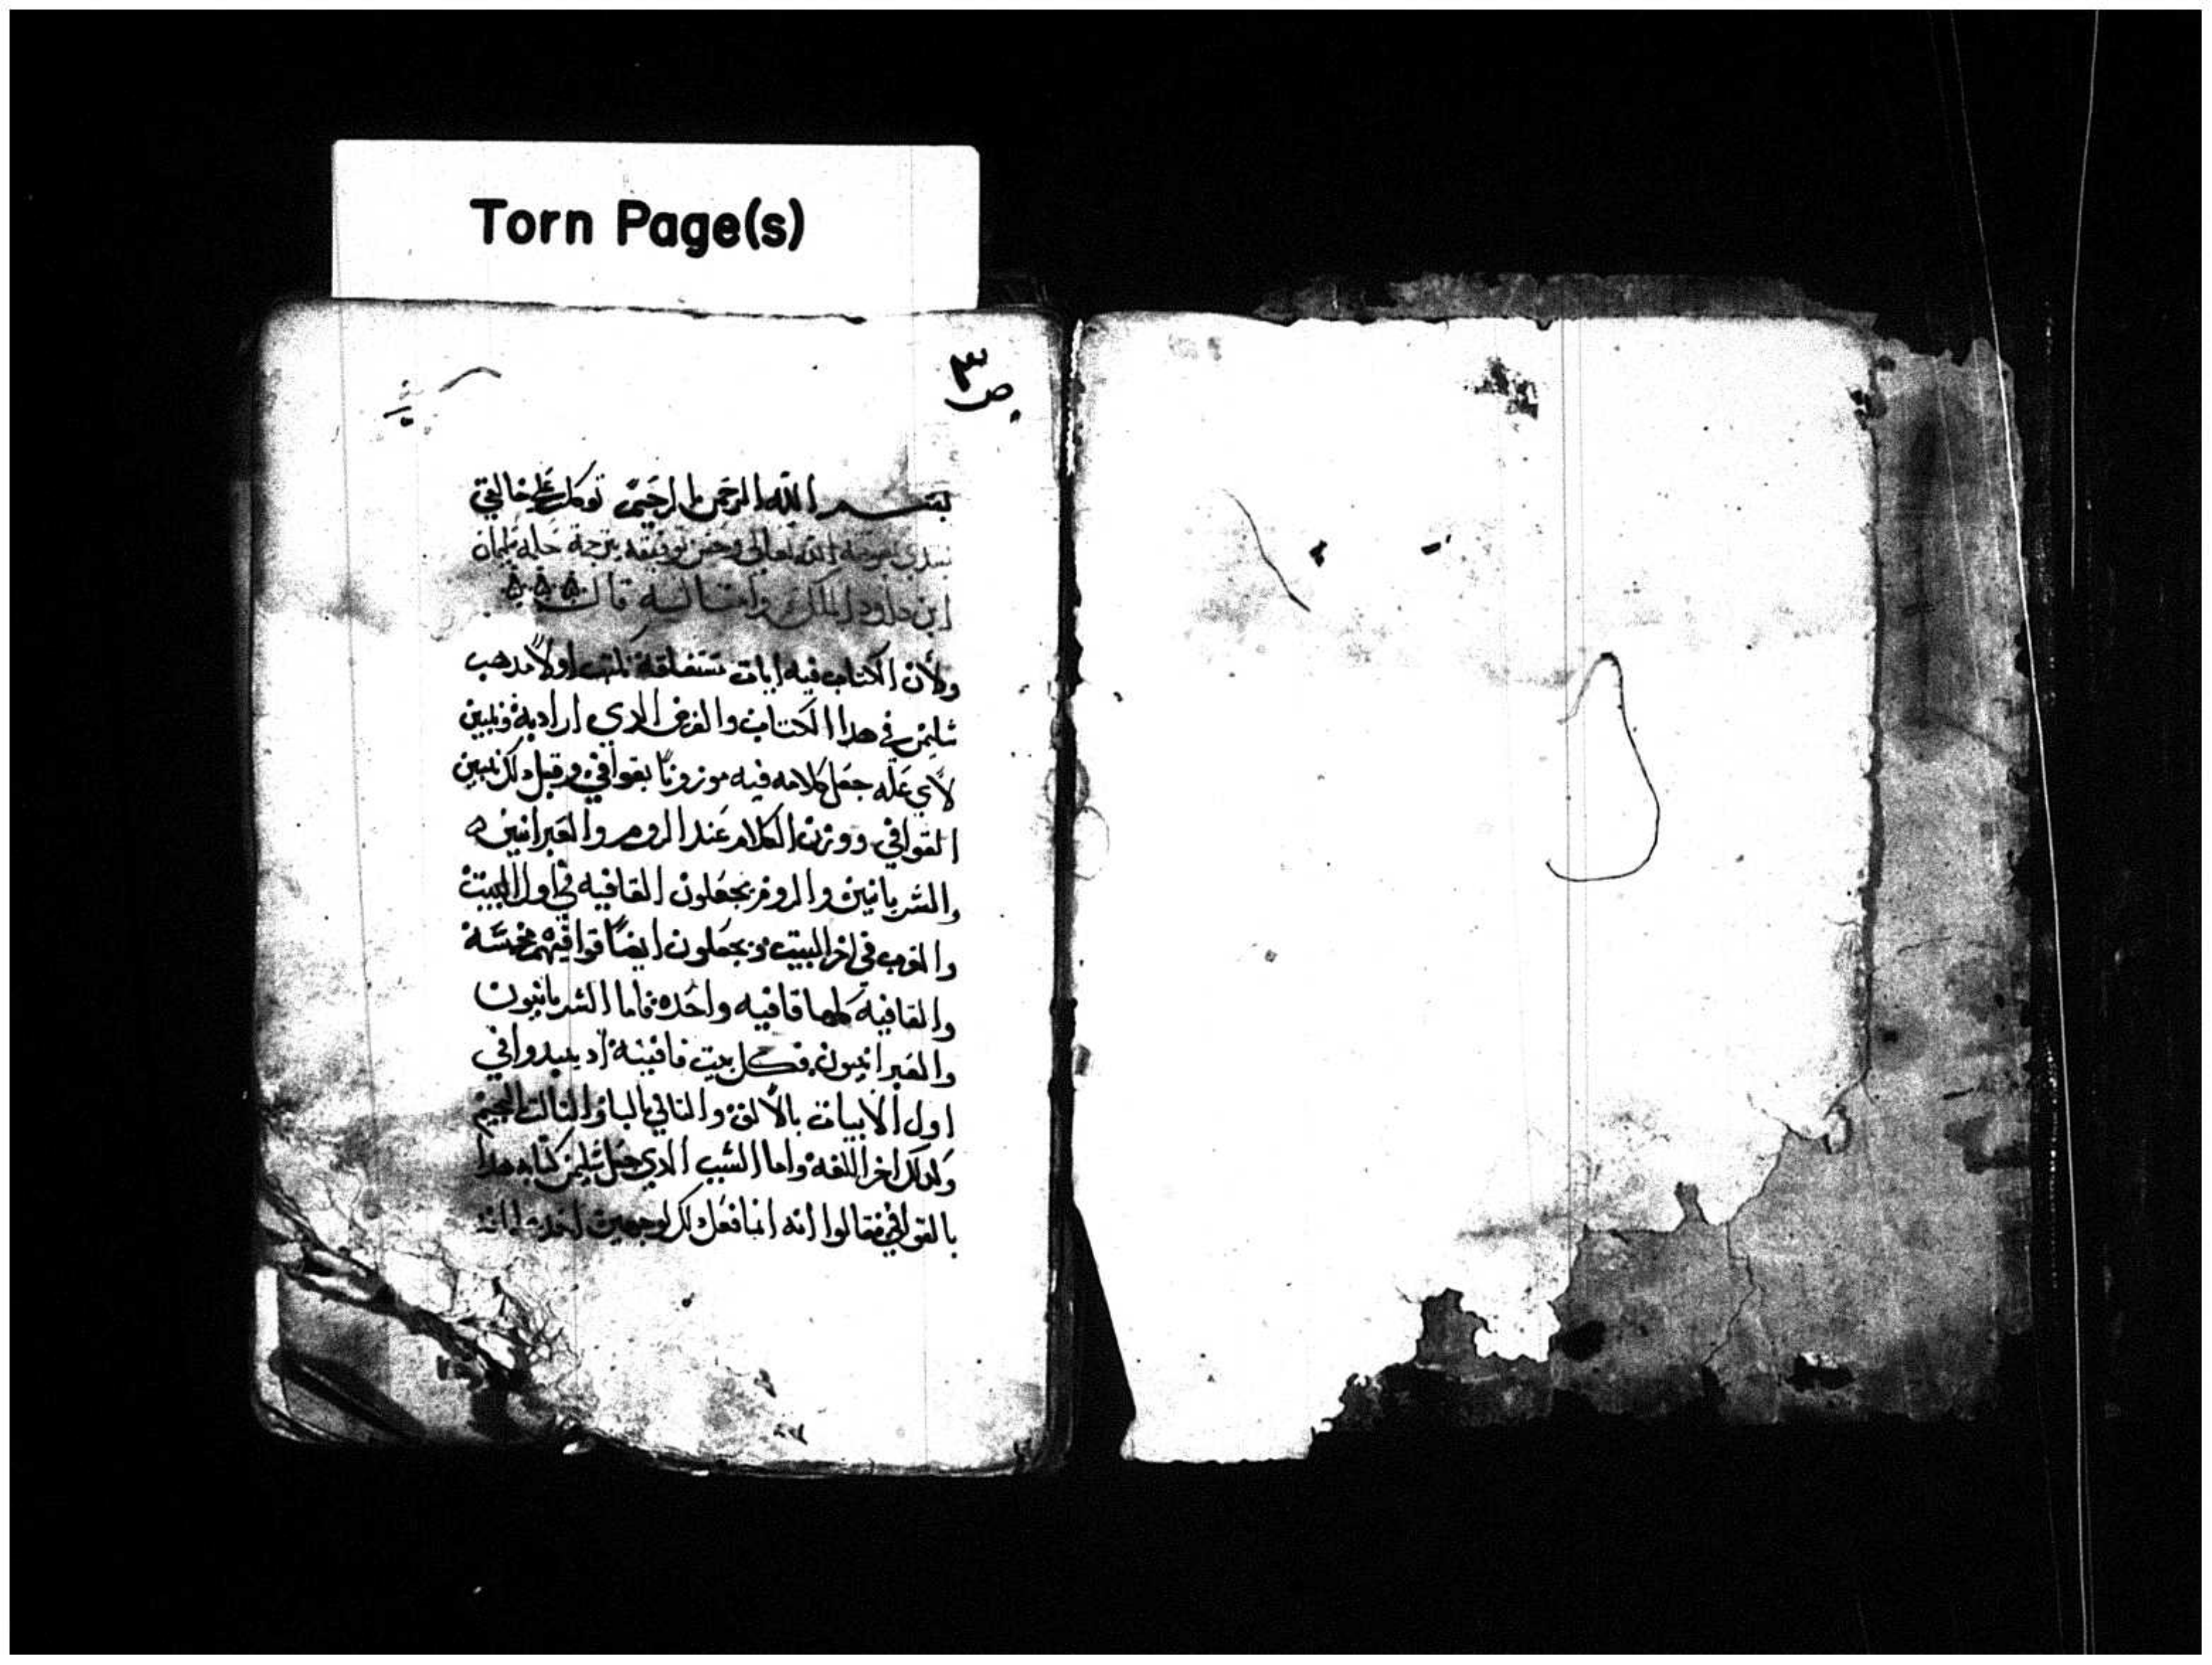 Torn Page(s)
ص ٣
بسم الله الرحمن الرحيم توكلت على خالقي
نبتدي بمعونة الله تعالى وحسن توفيقه بترجمة حكمة سليمان
ابن داوود الملك وامثاليه قال
ولأن الكتاب فيه ابيات نكتب اولاً مدهب
سليمن في هدا الكتاب والغرض الدي اراد به ونبين
لأي عله جعل كلامه فيه موزوناً بقوافي وقبل دلك نبين
القوافي ووزن الكلام عند الروم والعبرانيين
والسريانيين والروم يجعلون القافيه في اول البيت
والعرب في اخر البيت ويجعلون ايضاً قوافيهم مخمسة
والقافية كلها قافيه واحده فاما السريانيون
والعبرانيون فكل بيت قافيتة اد يبدوا في
اول الابيات بالألف والتاني بالبا والتالت بالجيم
وكدلك اخر اللغة واما السبب الدي جعل سليمن كتابه هدا
بالقوافي فقالوا انه انما فعل دلك لوجهين احدهما انه